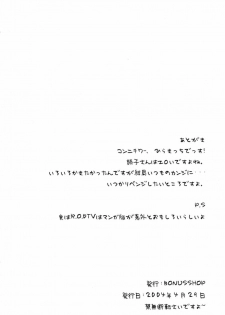 あとがき
コンニチワー、ひらもっちでっす!
読子さんはエロいですよね。
いろいろかきたかったんですが結局いつものカンジに・・・
いつかリベンジしたいところですよ。
P.S
実はR.O.DTVはマンガ版が意外とおもしろいらしいよ
発行:BONUSSHOP
発行日:2004年4月29日